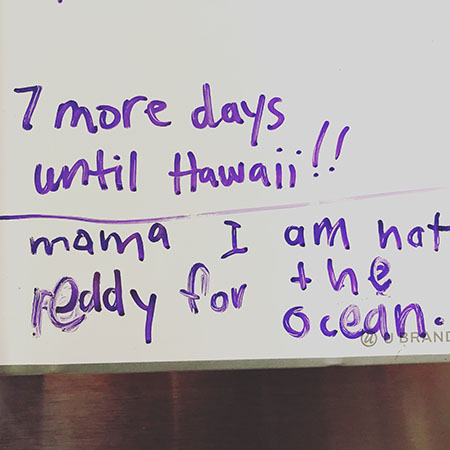 7 more days
until Hawaii!!
mama I am not
reddy for the
ocean.
@ U BRAND